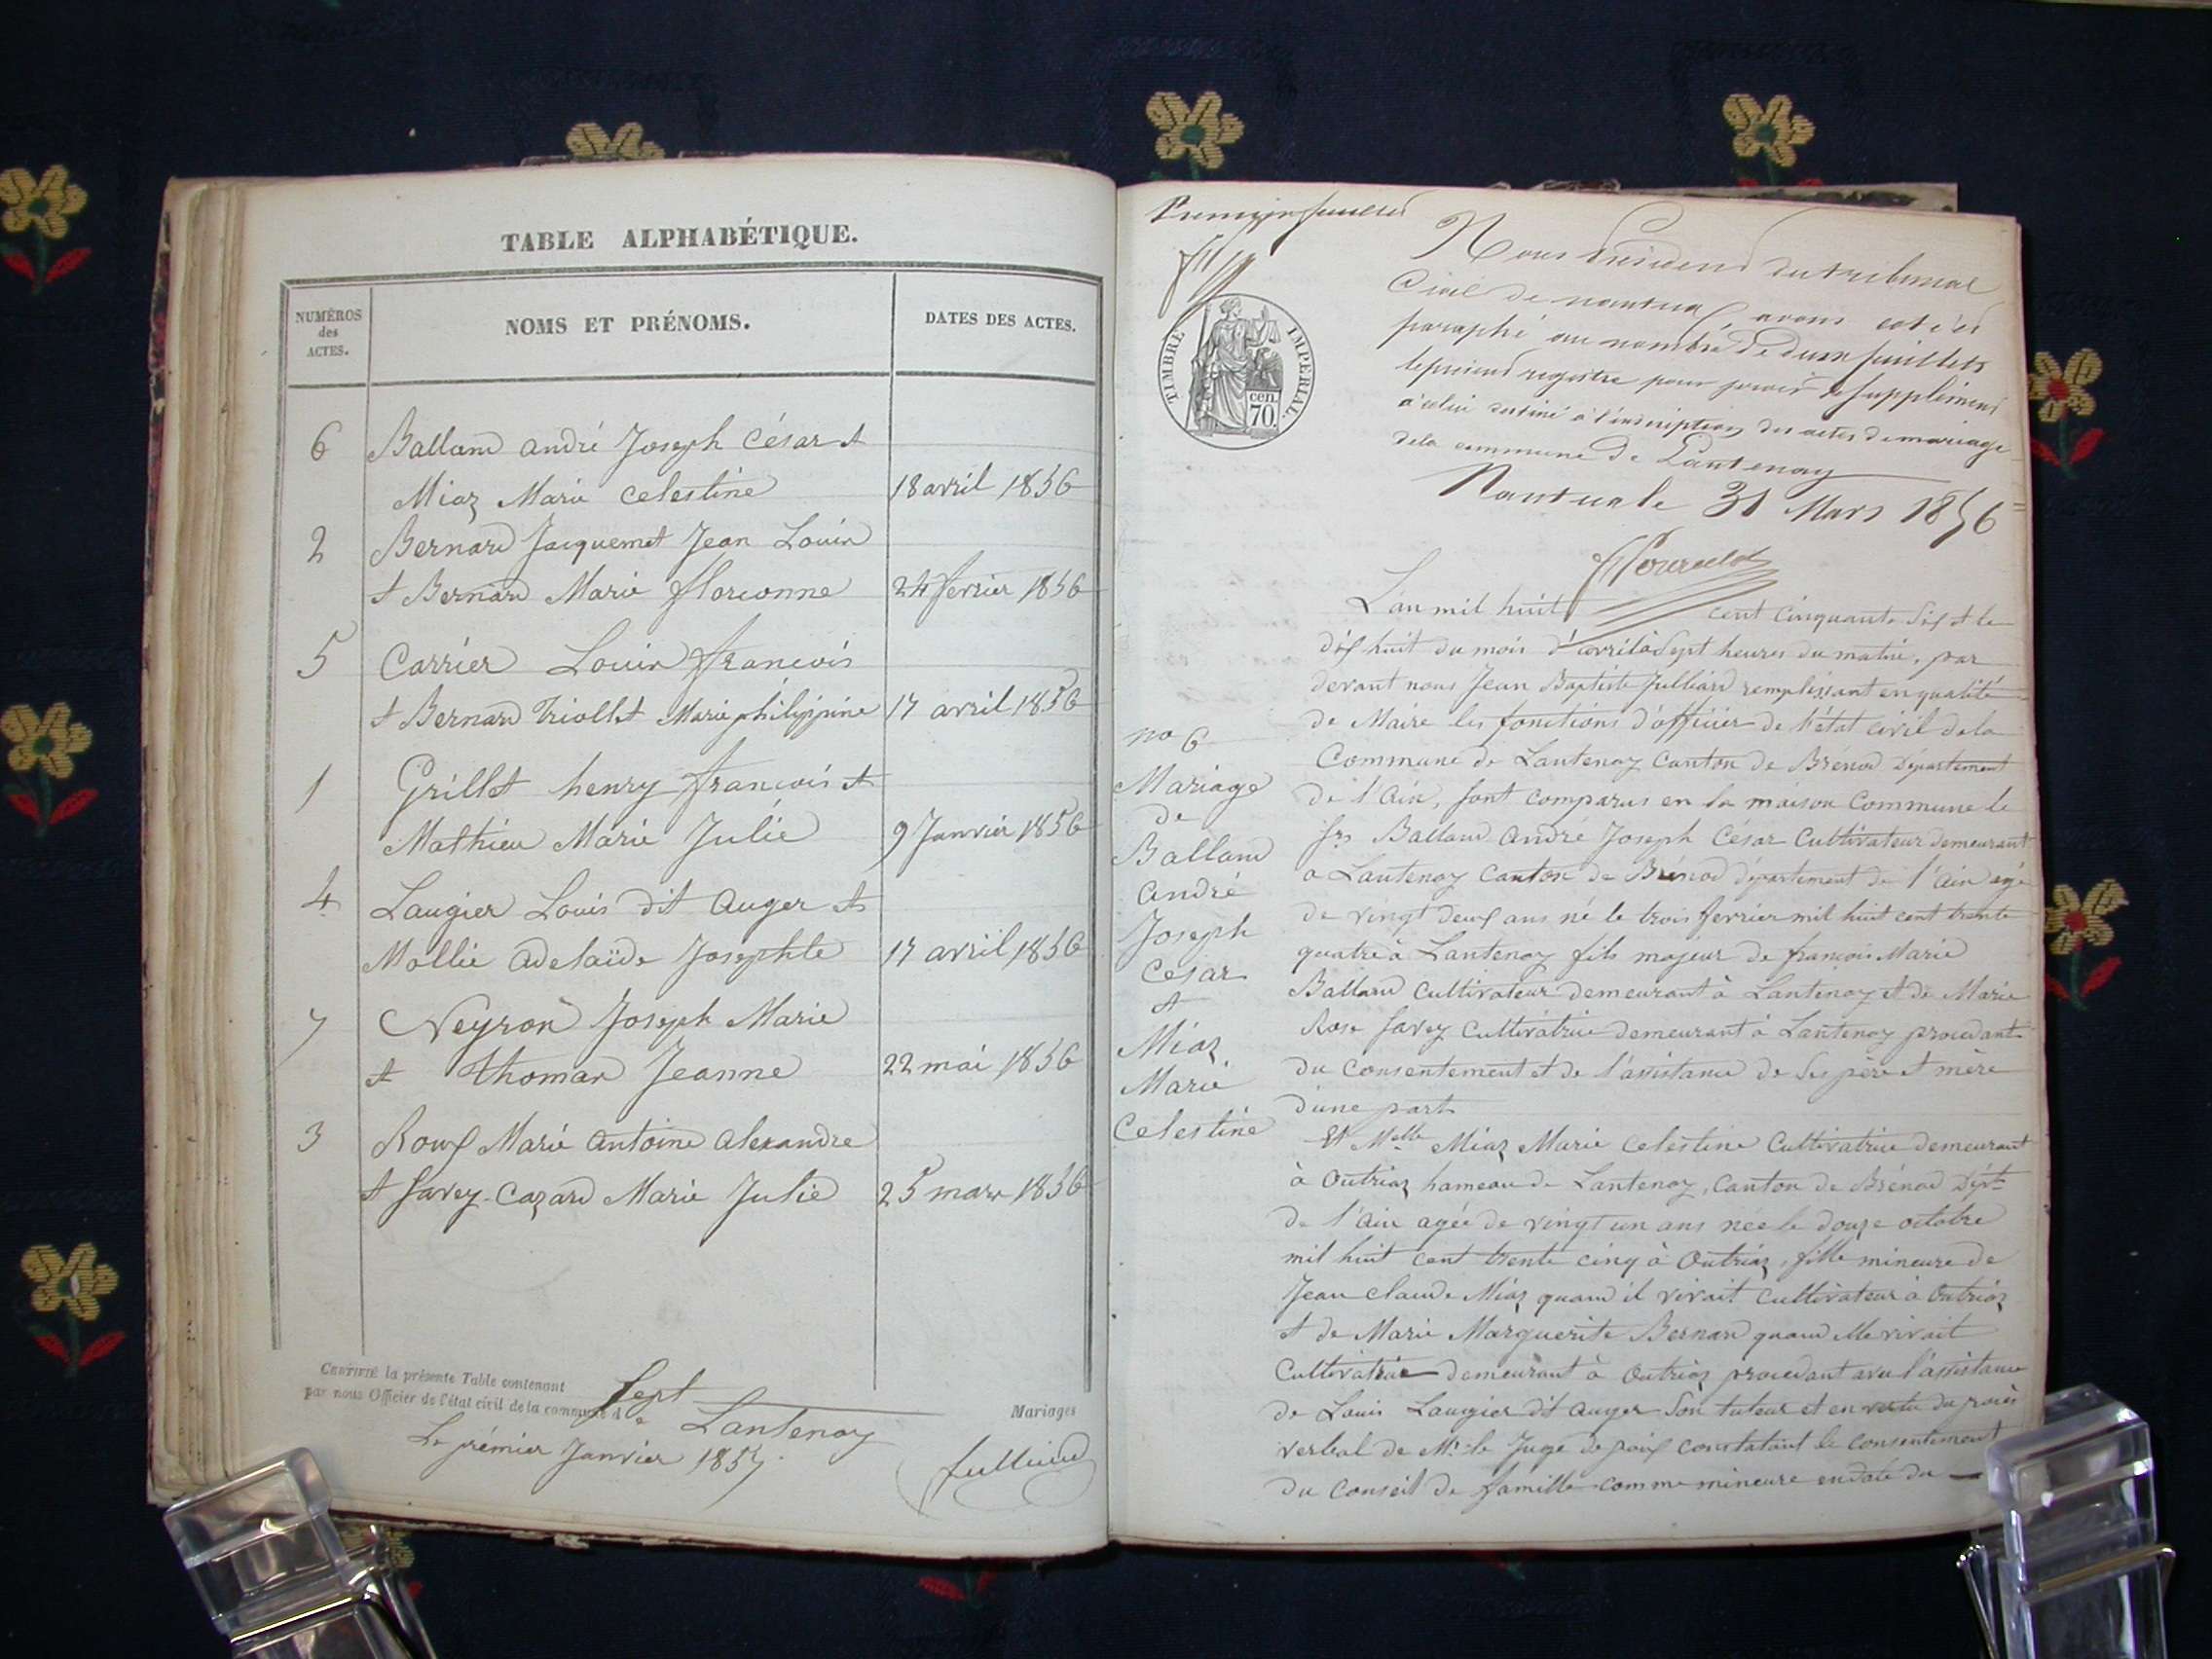 TABLE ALPHABÉTIQUE.
NUMÉROS
des
ACTES.
NOMS ET PRÉNOMS.
DATES DES ACTES.
6 Balland andré Joseph César et
Miaz Marie celestine 18 avril 1856
2 Bernard Jacquemet Jean Louis
et Bernard Marie florianne 24 fevrier 1856
5 Carrier Louis françois
et Bernard Triollet Marie philippine 17 avril 1856
1 Grillet henry françois et
Mathieu Marie Julie 9 Janvier 1856
4 Laugier Louis dit auger et
Mollie adelaïde Josephte 17 avril 1856
7 Neyron Joseph Marie
et thomas Jeanne 22 mai 1856
3 Roux Marie antoine alexandre
et Savey-Cazard Marie Julie 25 mars 1856
CERTIFIÉ la présente Table contenant Sept
par nous Officier de l'état civil de la commune de Lantenay
Le prémier Janvier 1857.
Mariages
Julliard
Premier feuillet
TIMBRE IMPÉRIAL.
cen.
70.
Nous Président du tribunal
Civil de nantua, avons coté et
paraphé au nombre de deux feuillets
le présent registre pour servir de supplément
à celui destiné à l'inscription des actes de mariage
de la commune de Lantenay
Nantua le 31 Mars 1856
L'an mil huit cent cinquante six et le
dix huit du mois d'avril à Sept heures du matin, par
devant nous Jean Baptiste Julliard remplissant en qualité
de Maire les fonctions d'officier de l'état civil de la
Commune de Lantenay Canton de Brénod département
de l'ain, sont comparus en la maison Commune le
Srs Balland André Joseph César Cultivateur demeurant
a Lantenay Canton de Brénod département de l'ain agé
de vingt deux ans né le trois fevrier mil huit cent trente
quatre à Lantenay fils majeur de françois Marie
Balland Cultivateur demeurant à Lantenay et de Marie
Rose Savey Cultivatrice demeurant à Lantenay procedant
du Consentement et de l'assistance de Ses père et mère
d'une part
Et Melle Miaz Marie celestine Cultivatrice demeurant
à Outriaz hameau de Lantenay, Canton de Brénod Dépt
de l'ain agée de vingt un ans née le douze octobre
mil huit cent trente cinq à Outriaz, fille mineure de
Jean claude Miaz quand il vivait Cultivateur à Outriaz
et de Marie Marguerite Bernard quand elle vivait
Cultivatrice demeurant à Outriaz procedant avec l'assistance
de Louis Laugier dit auger Son tuteur et en vertu du procès
verbal de Mr. le Juge de paix constatant le consentement
du Conseil de famille comme mineure en date du
no 6
Mariage
de
Balland
andré
Joseph
César
et
Miaz
Marie
Celestine